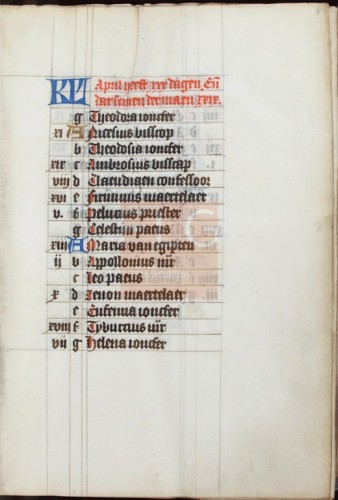 KL April heeft xxx dagen. En
dat scijnen der maen xxix.
g Theodora joncfer
xi A Nicesius bisscop
b Theodosia joncfer
xix c Ambrosius bisscap
viij d Claeudiaen confessoor
xvi e Firminus maertelaer
v. f Pelucius priester
g Celestijn paeus
xiij A Maria van egipten
ij b Appollonius mr
c Leo paeus
x d Zenon maertelaer
e Eufemia joncfer
xviij f Tyburcius mr
vij g Helena joncfer